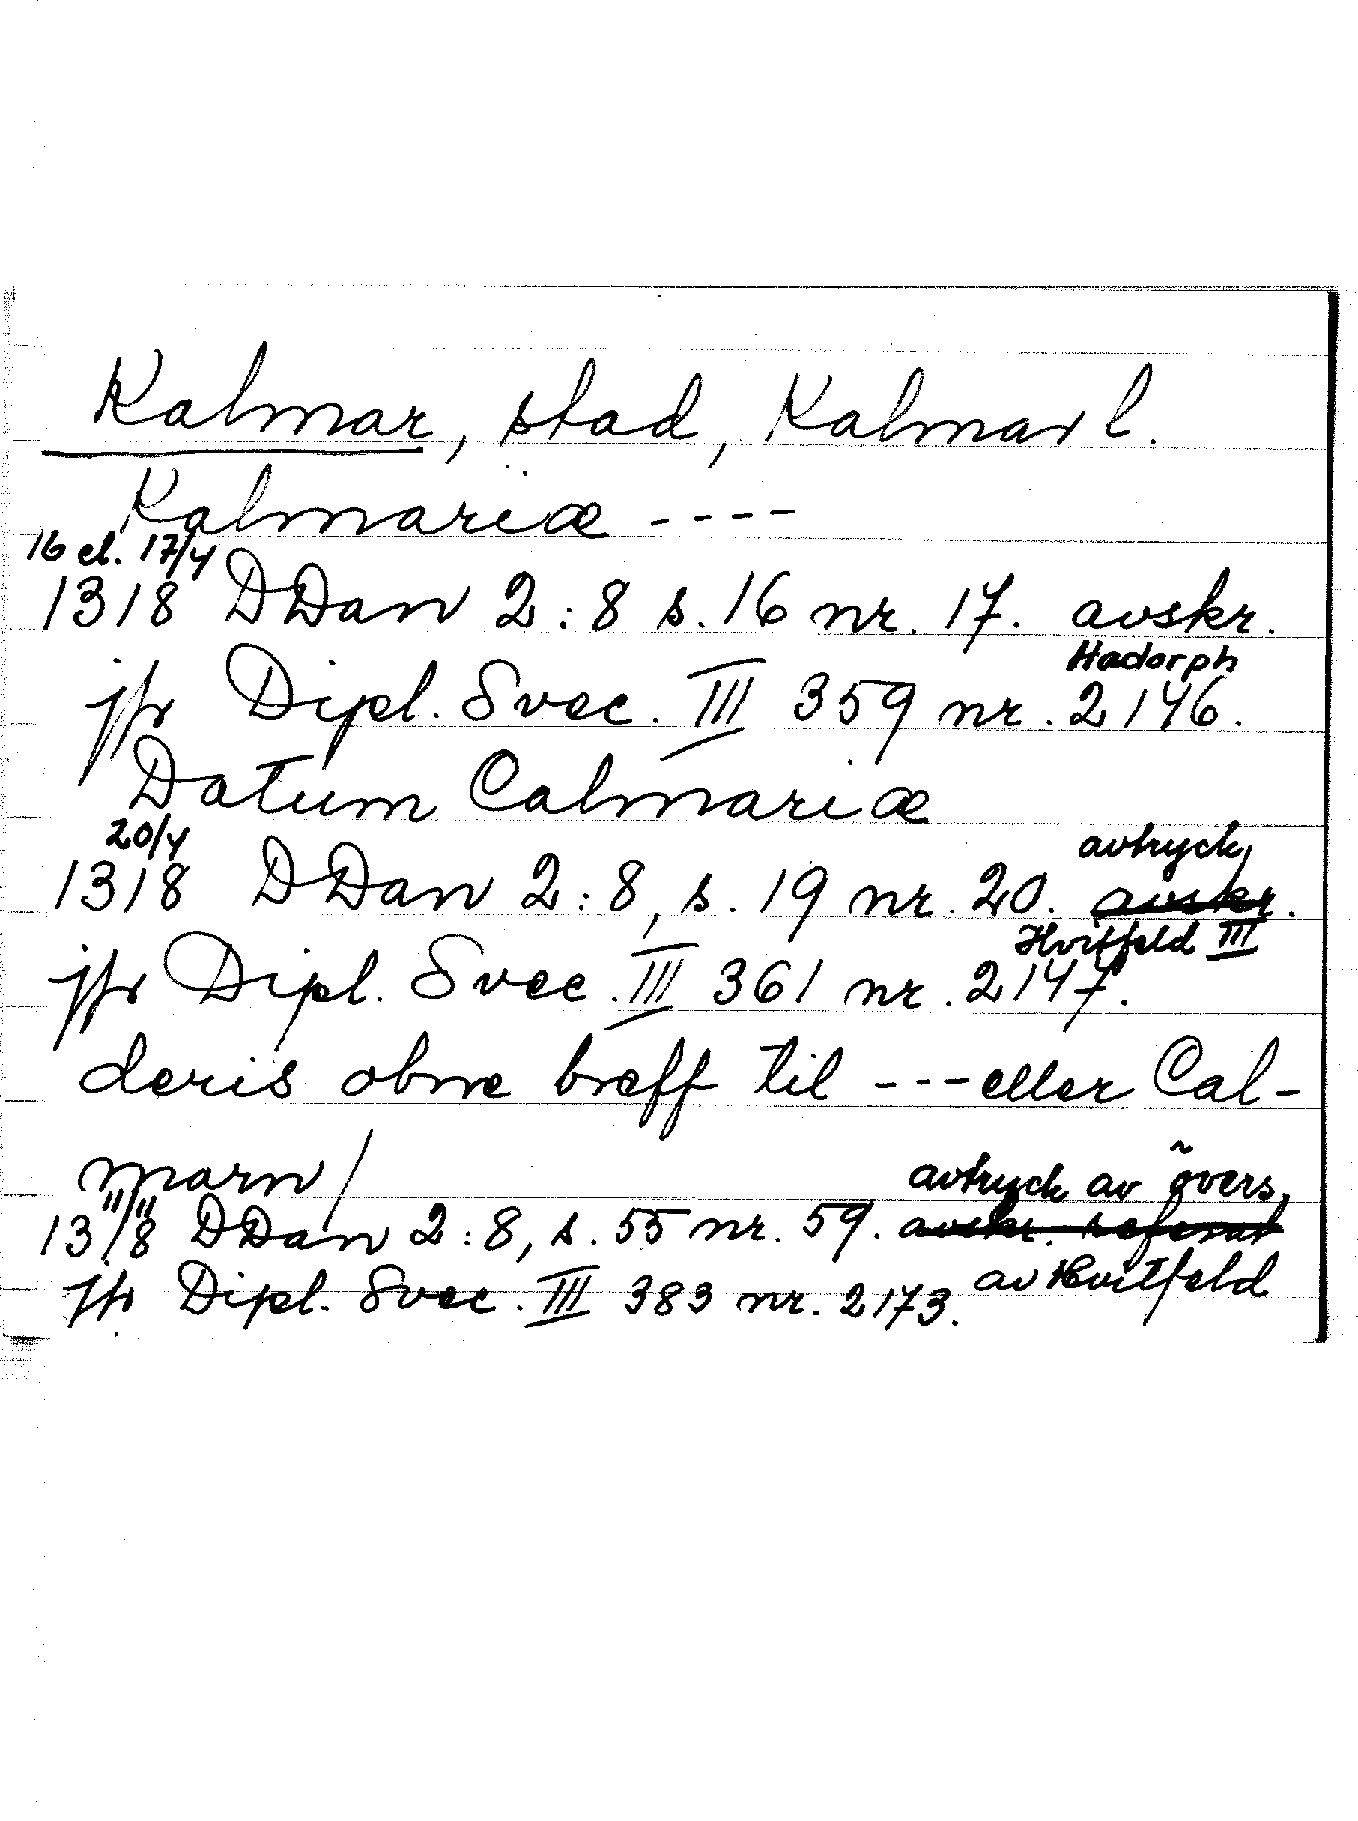 Kalmar, stad, Kalmar l.
Kalmariæ ----
16 el. 17/4
1318 DDan 2:8 s. 16 nr. 17. avskr.
Hadorph
jfr Dipl. Svec. III 359 nr. 2146.
Datum Calmariæ
20/4
avtryck
1318 DDan 2:8, s. 19 nr. 20. avskr.
Hvitfeld III
jfr Dipl. Svec. III 361 nr. 2147.
deris obne breff til ---eller Cal-
marn/
11/11
avtryck av övers.
1318 DDan 2:8, s. 55 nr. 59. avskr. referat
av Hvitfeld
jfr Dipl. Svec. III 383 nr. 2173.